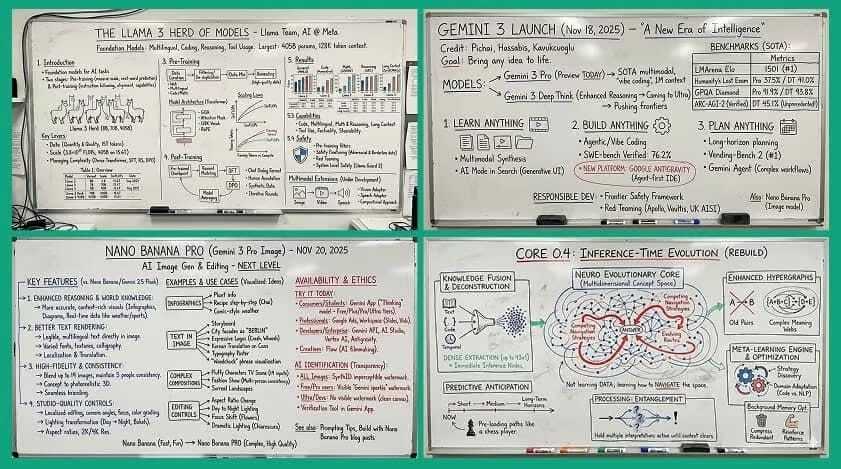 THE LLAMA 3 HERD OF MODELS - Llama Team, AI @ Meta
Foundation Models: Multilingual, Coding, Reasoning, Tool Usage. Largest: 405B params, 128K token context.
1. Introduction
• Foundation models for AI tasks
Llama 3 Herd (8B, 70B, 405B)
Key Levers
• Data (Quantity & Quality, 15T tokens)
Table 1. Overview
2. Pre-Training
Data Mix
Model Architecture (Transformer)
Scaling Laws
4. Post-Training
Reward Modeling
SFT
DPO
Model Averaging
• Human Annotation
• Synthetic Data
• Iterative Rounds
5. Results
5.3 Capabilities
• Code, Multilingual, Math & Reasoning, Long Context
• Tool Use, Factuality, Steerability
5.4 Safety
• Pre-training Filters
• Red Teaming
• System Level Safety (Llama Guard 3)
Multimodal Extensions (Under Development)
Image
Video
Speech
• Vision Adapter
• Speech Adapter
• Compositional Approach
GEMINI 3 LAUNCH (Nov 18, 2025) — "A New Era of Intelligence"
Credit: Pichai, Hassabis, Kavukcuoglu
Goal: Bring any idea to life.
MODELS:
Gemini 3 Pro (Preview TODAY) → SOTA multimodal,
"vibe coding", 1M context
Gemini 3 Deep Think (Enhanced Reasoning → Coming to Ultra)
→ Pushing frontiers
BENCHMARKS (SOTA):
Metrics
LMArena Elo 1501 (#1)
Humanity's Last Exam Pro 37.5% / DT 41.0%
GPQA Diamond Pro 91.9% / DT 93.8%
ARC-AGI-2 (Verified) DT 45.1% (Unprecedented!)
1. LEARN ANYTHING
• Multimodal Synthesis
• AI Mode in Search (Generative UI)
2. BUILD ANYTHING
• Agentic/Vibe Coding
• SWE-bench Verified: 76.2%
• NEW PLATFORM: GOOGLE ANTIGRAVITY
(Agent-first IDE)
3. PLAN ANYTHING
• Long-horizon planning
• Vending-Bench 2 (#1)
• Gemini Agent (Complex workflows)
RESPONSIBLE DEV:
• Frontier Safety Framework
• Red Teaming (Apollo, Vaultis, UK AISI)
Also: Nano Banana Pro
(Image model)
NANO BANANA PRO (Gemini 3 Pro Image) - NOV 20, 2025
AI Image Gen & Editing - NEXT LEVEL
KEY FEATURES (vs. Nano Banana/Gemini 2.5 Flash)
1. ENHANCED REASONING & WORLD KNOWLEDGE:
• More accurate, context-rich visuals (Infographics,
Diagrams, Real-time data like weather/sports).
2. BETTER TEXT RENDERING:
• Legible, multilingual text directly in image.
• Varied fonts, textures, calligraphy.
• Localization & Translation.
3. HIGH-FIDELITY & CONSISTENCY:
• Blend up to 14 images, maintain 5 people consistency.
• Concept to photorealistic 3D.
• Seamless branding.
4. STUDIO-QUALITY CONTROLS:
• Localized editing, camera angles, focus, color grading.
• Lighting transformation (Day → Night, Bokeh).
• Aspect ratios, 2K/4K Res.
EXAMPLES & USE CASES (Visualized Ideas)
INFOGRAPHICS
• Plant info
• Recipe step-by-step (Chai)
• Comic-style weather
TEXT IN IMAGE
• Storyboard
• City facades as "BERLIN"
• Expressive Logos (Crash, Weeds)
• Korean Translation on Cans
• Typography Poster
• "Woodchuck" phrase visualization
COMPLEX COMPOSITIONS
• Fluffy Characters TV Scene (14 inputs)
• Fashion Show (Multi-person consistency)
• Surreal Landscapes
EDITING CONTROLS
• Aspect Ratio Change
• Day to Night Lighting
• Focus Shift (Flowers)
• Dramatic Lighting (Chiaroscuro)
Nano Banana (Fast, Fun) → Nano Banana PRO (Complex, High Quality)
AVAILABILITY & ETHICS
TRY IT TODAY:
• Consumers/Students: Gemini App ("Thinking"
model - Free/Plus/Pro/Ultra tiers).
• Professionals: Google Ads, Workspace (Slides, Vids).
• Developers/Enterprise: Gemini API, AI Studio,
Vertex AI, Antigravity.
• Creatives: Flow (AI filmmaking).
AI IDENTIFICATION (Transparency):
• ALL Images: SynthID imperceptible watermark.
• Free/Pro users: Visible "Gemini sparkle" watermark.
• Ultra/Devs: No visible watermark (clean canvas).
• Verification Tool in Gemini App.
See also: Prompting Tips, Build with Nano
Banana Pro blog posts
CORE 0.4: INFERENCE-TIME EVOLUTION (REBUILD)
KNOWLEDGE FUSION
& DECONSTRUCTION
Text
Code
Temporal
DENSE EXTRACTION
= Immediate Inference Nodes
PREDICTIVE ANTICIPATION
Short
Medium
Long-Term
Horizons
NOW
Pre-loading paths like
a chess player.
NEURO EVOLUTIONARY CORE
(Multidimensional Concept Space)
Competing
Navigation
Strategies
Competing
Navigation
Strategies
ANSWER
Evolving
Routes
Not learning DATA; learning how to NAVIGATE the space.
PROCESSING: ENTANGLEMENT
Hold multiple interpretations active until context clears.
ENHANCED HYPERGRAPHS
A B
Old Pairs
Complex Meaning Webs
META-LEARNING ENGINE
& OPTIMIZATION
Strategy
Discovery
Domain Adaptation
(Code vs. NLP)
Background Memory Opt.
Compress
Redundant
Reinforce
Patterns